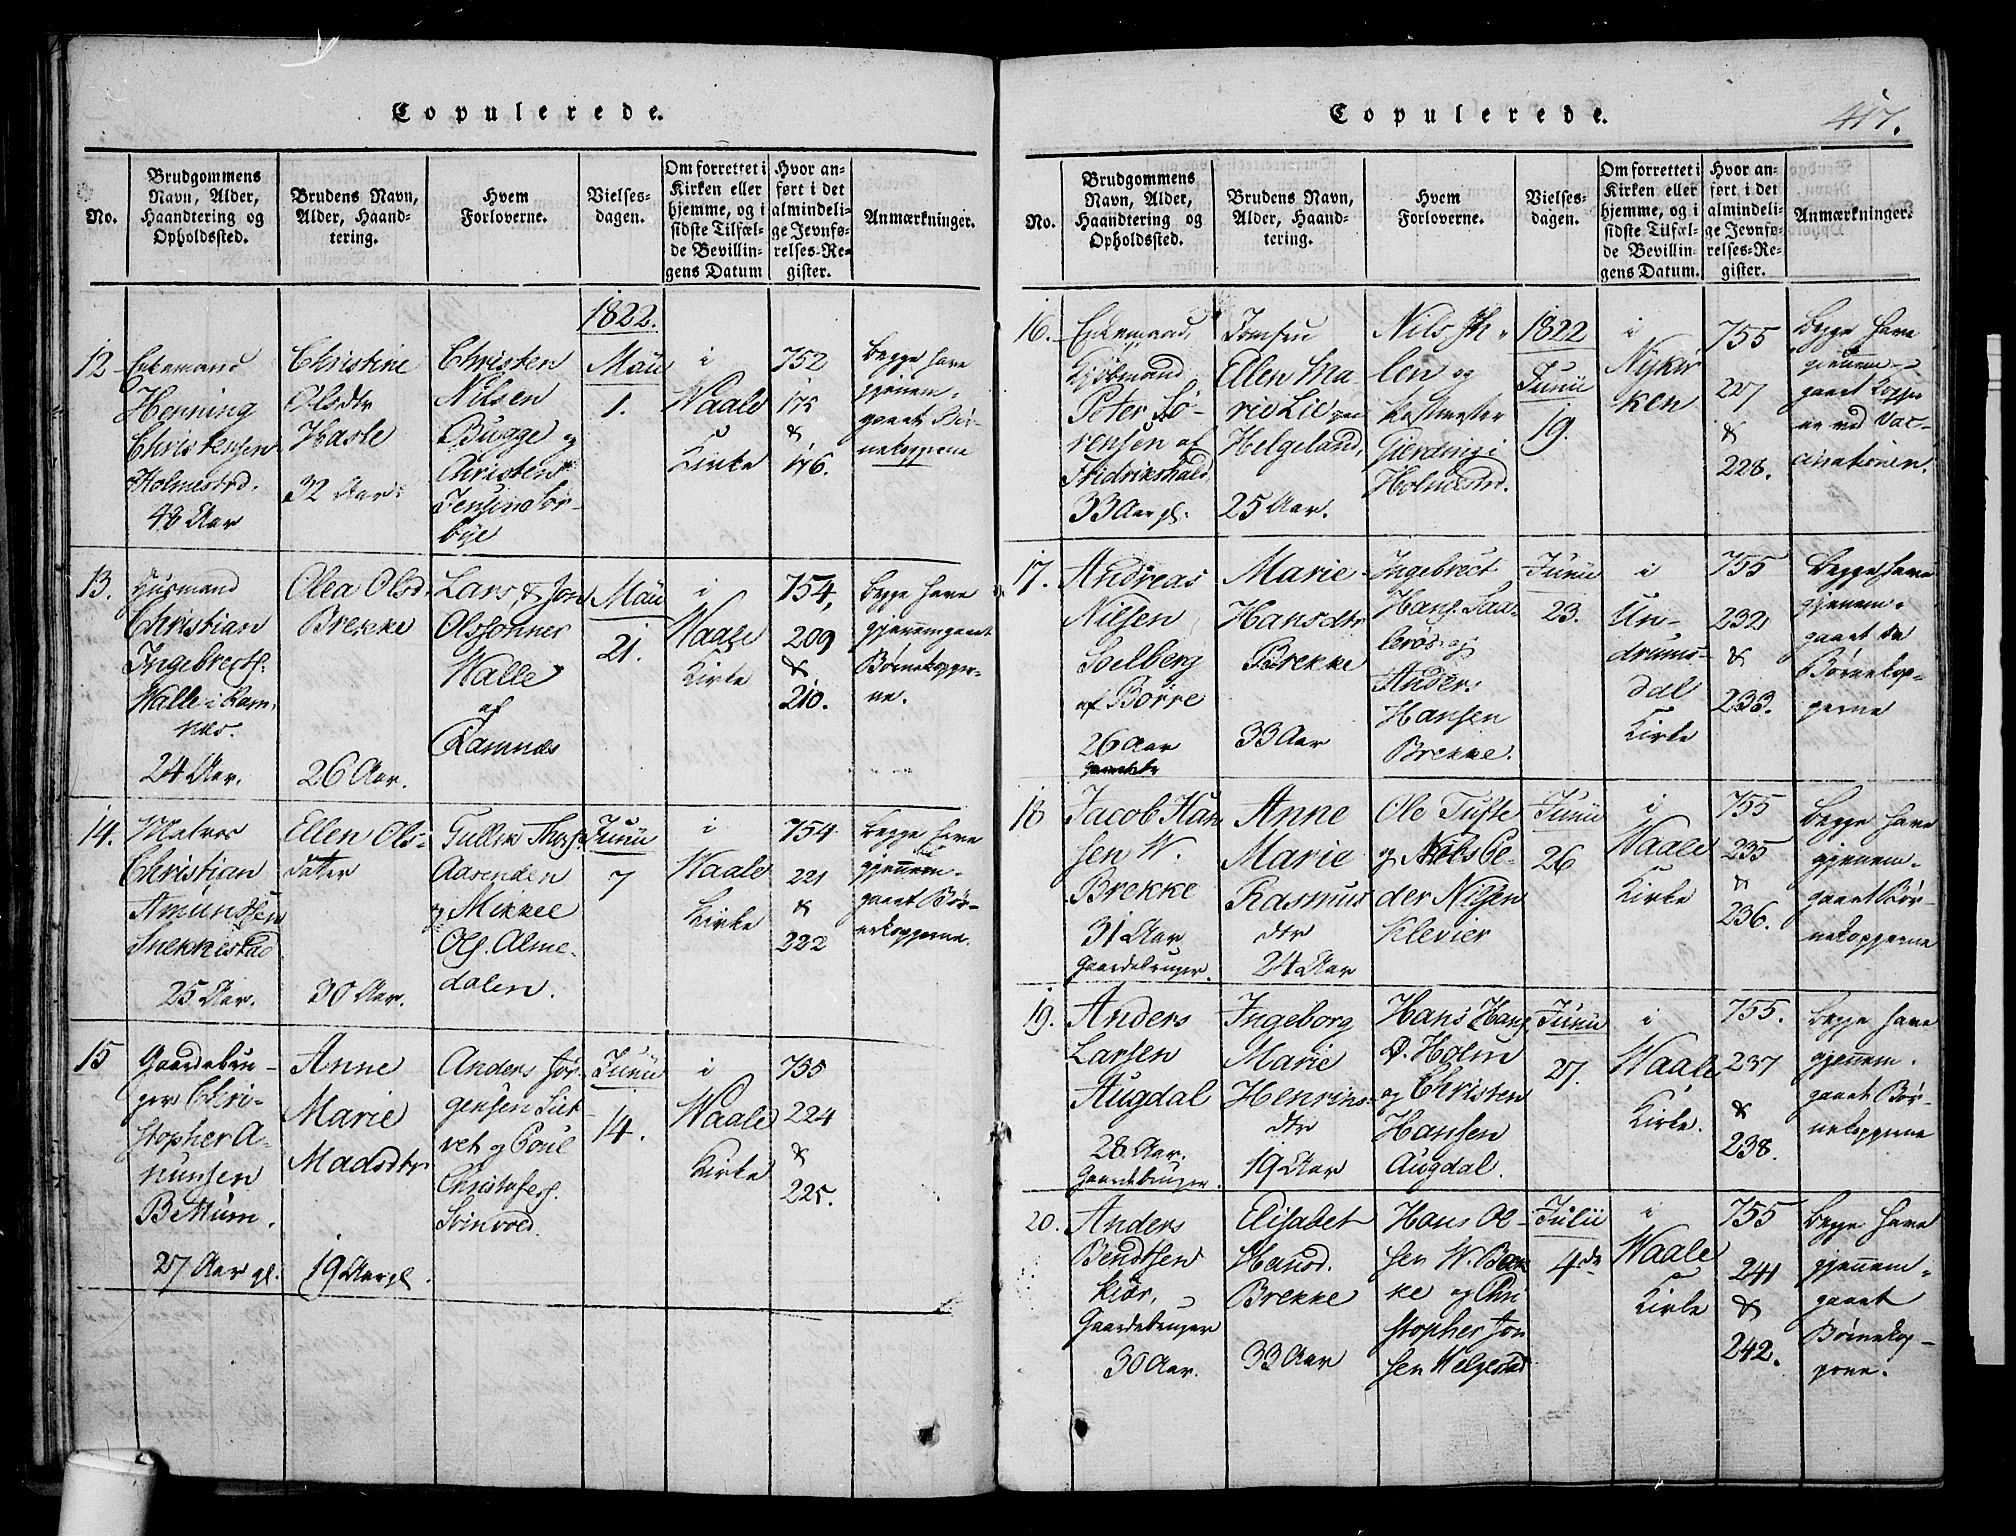 Copulerede.
No.
Brudgommens
Navn, Alder,
Haandtering og
Opholdssted.
Brudens Navn,
Alder, Haand-
tering.
Hvem
Forloverne.
Vielses-
dagen.
Om forrettet i
Kirken eller
hjemme, og i
sidste Tilfæl-
de Bevillin-
gens Datum
Hvor an-
ført i det
almindeli-
ge Jevnfø-
relses-Re-
gister.
Anmærkninger.
12
Enkemand
Henning
Christensen
Holmestrd.
48 Aar
Christine
Olsdtr
Hasle
32 Aar
Christen
Nilsen
Bugge og
Christen
bÿe
1822.
Maii
1.
i
Waale
Kirke
752
175
&
176.
begge have
gjenem-
gaaet Bør-
nekopperne
13.
Husmand
Christian
Ingebrechts.
Walle i Ram-
næs.
24 Aar.
Olea Olsd.
Brekke
26 Aar.
Lars, & Jon
Olssønner
Walle
af
Ramnæs
Maii
21.
i
Waale
Kirke
754,
209
&
210.
begge have
gjenemgaaet
Børnekopper-
ne.
14.
Matros
Christian
Amundsen
Snekkestad
25 Aar.
Ellen Ols-
datter
30 Aar.
Tullik Thors.
Aasenden
og Mikkel
Ols. Alme-
dalen.
Junii
7
i
Waale
Kirke
754
221
&
222
begge have
gjennem-
gaaet Bør-
nekopperne.
15
Gaardebru-
ger Chri-
stopher A-
munsen
Bettum.
27 Aar gl.
Anne
Marie
Madsdtr
19 Aar gl.
Anders Jør-
gensen
vet og Poul
Christofers.
Svinvold.
Junii
14.
i
Waale
Kirke
755
224
&
225.
Copulerede.
417.
No.
Brudgommens
Navn, Alder,
Haandtering og
Opholdssted.
Brudens Navn,
Alder, Haand-
tering.
Hvem
Forloverne.
Vielses-
dagen.
Om forrettet i
Kirken eller
hjemme, og i
sidste Tilfæl-
de Bevillin-
gens Datum.
Hvor an-
ført i det
almindeli-
ge Jevnfø-
relses-Re-
gister.
Anmærkninger.
16.
Enkemand,
Kjøbmand
Peter Sø-
rensen af
Fridrikshald,
33 Aar gl.
Jomfru
Ellen Ma
rie Lie paa
Helgeland,
25 Aar.
Nils Th-
len og
Gjerding i
Holmestrd.
1822
Junii
19.
i
Nÿkir
ken
755
227
&
228.
begge have
gjennem-
gaaet Kopper
ne ved Vac-
cinationen.
17.
Andreas
Nilsen
Solberg
af Børre
26 Aar
Marie
Hansdtr
Brekke
33 Aar
Ingebrect
Hans. Saa-
lerød og
Anders
Hansen
Brekke.
Junii
23.
i
Un-
drums-
dal
Kirke
755
232
&
233.
Begge have
gjenem-
gaaet da
Børnekop-
perne
18
Jacob Han
sen W.
Brekke
31 Aar
Gaardebruger.
Anne
Marie
Rasmus
dtr
24 Aar
Ole Tufte
og Nils Pe-
der Nilsen
Klevier
Junii
26
i
Waale
Kirke
755
235
&
236.
Begge have
gjenem-
gaaet Bør-
nekopperne
19.
Anders
Larsen
Augdal
28 Aar.
Gaardebruger.
Ingeborg
Marie
Henriks-
dtr
19 Aar
Hans Hans.
Ø. Holm
og Christen
Hansen
Augdal.
Junii
27.
i
Waale
Kirke.
755.
237
&
238.
begge have
gjennem-
gaaet Bør-
nekopperne
20.
Anders
Bendtsen
Kiær,
Gaardebruger
30 Aar.
Elisabet
Hansd.
Brekke
33 Aar
Hans Ol-
sen W. Bæk
ke og Chri
stopher Jon
sen Helgeland
Julii
4de
i
Waale
Kirke
755
241
&
242.
begge have
gjennem-
gaaet
Børnekop-
perne.